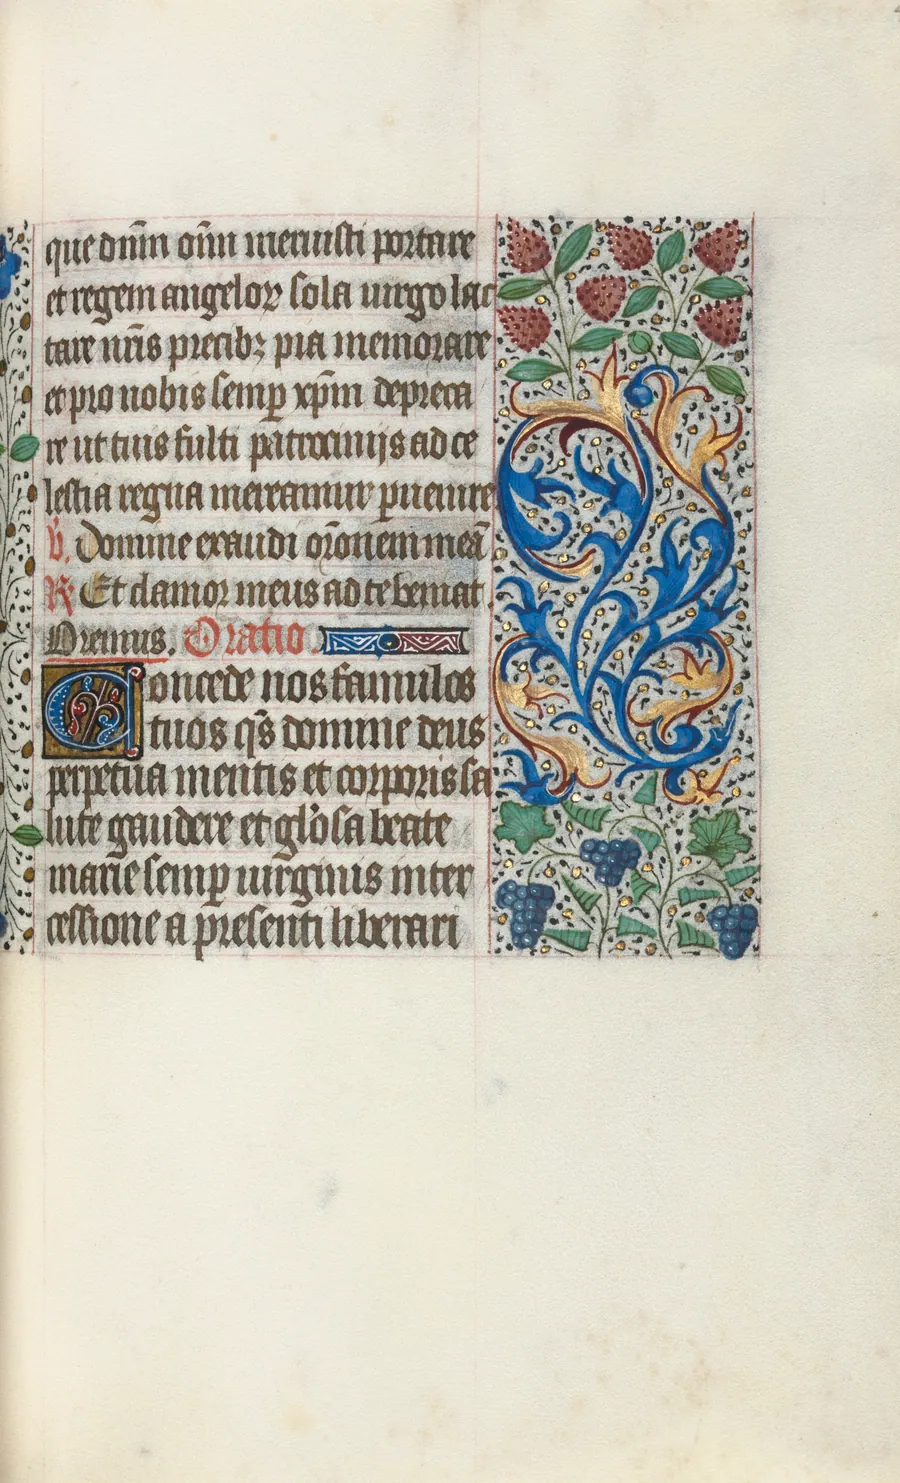 que dnm̄ om̄ meruisti portare
et regem angeloꝝ sola uirgo lac
tare nr̄is precibꝫ pia memorare
et pro nobis semꝑ xp̄m depreca
re ut tuis fulti patrocinijs ad ce
lestia regna mereamur ꝑuenire
℣. Domine exaudi or̄onem meā
℟ Et clamor meus ad te veniat.
Oremus. Oratio
Concede nos famulos
tuos qs̄ domine deus
perpetua mentis et corporis sa
lute gaudere et gło̅sa beate
marie semꝑ uirginis inter
cessione a presenti liberari